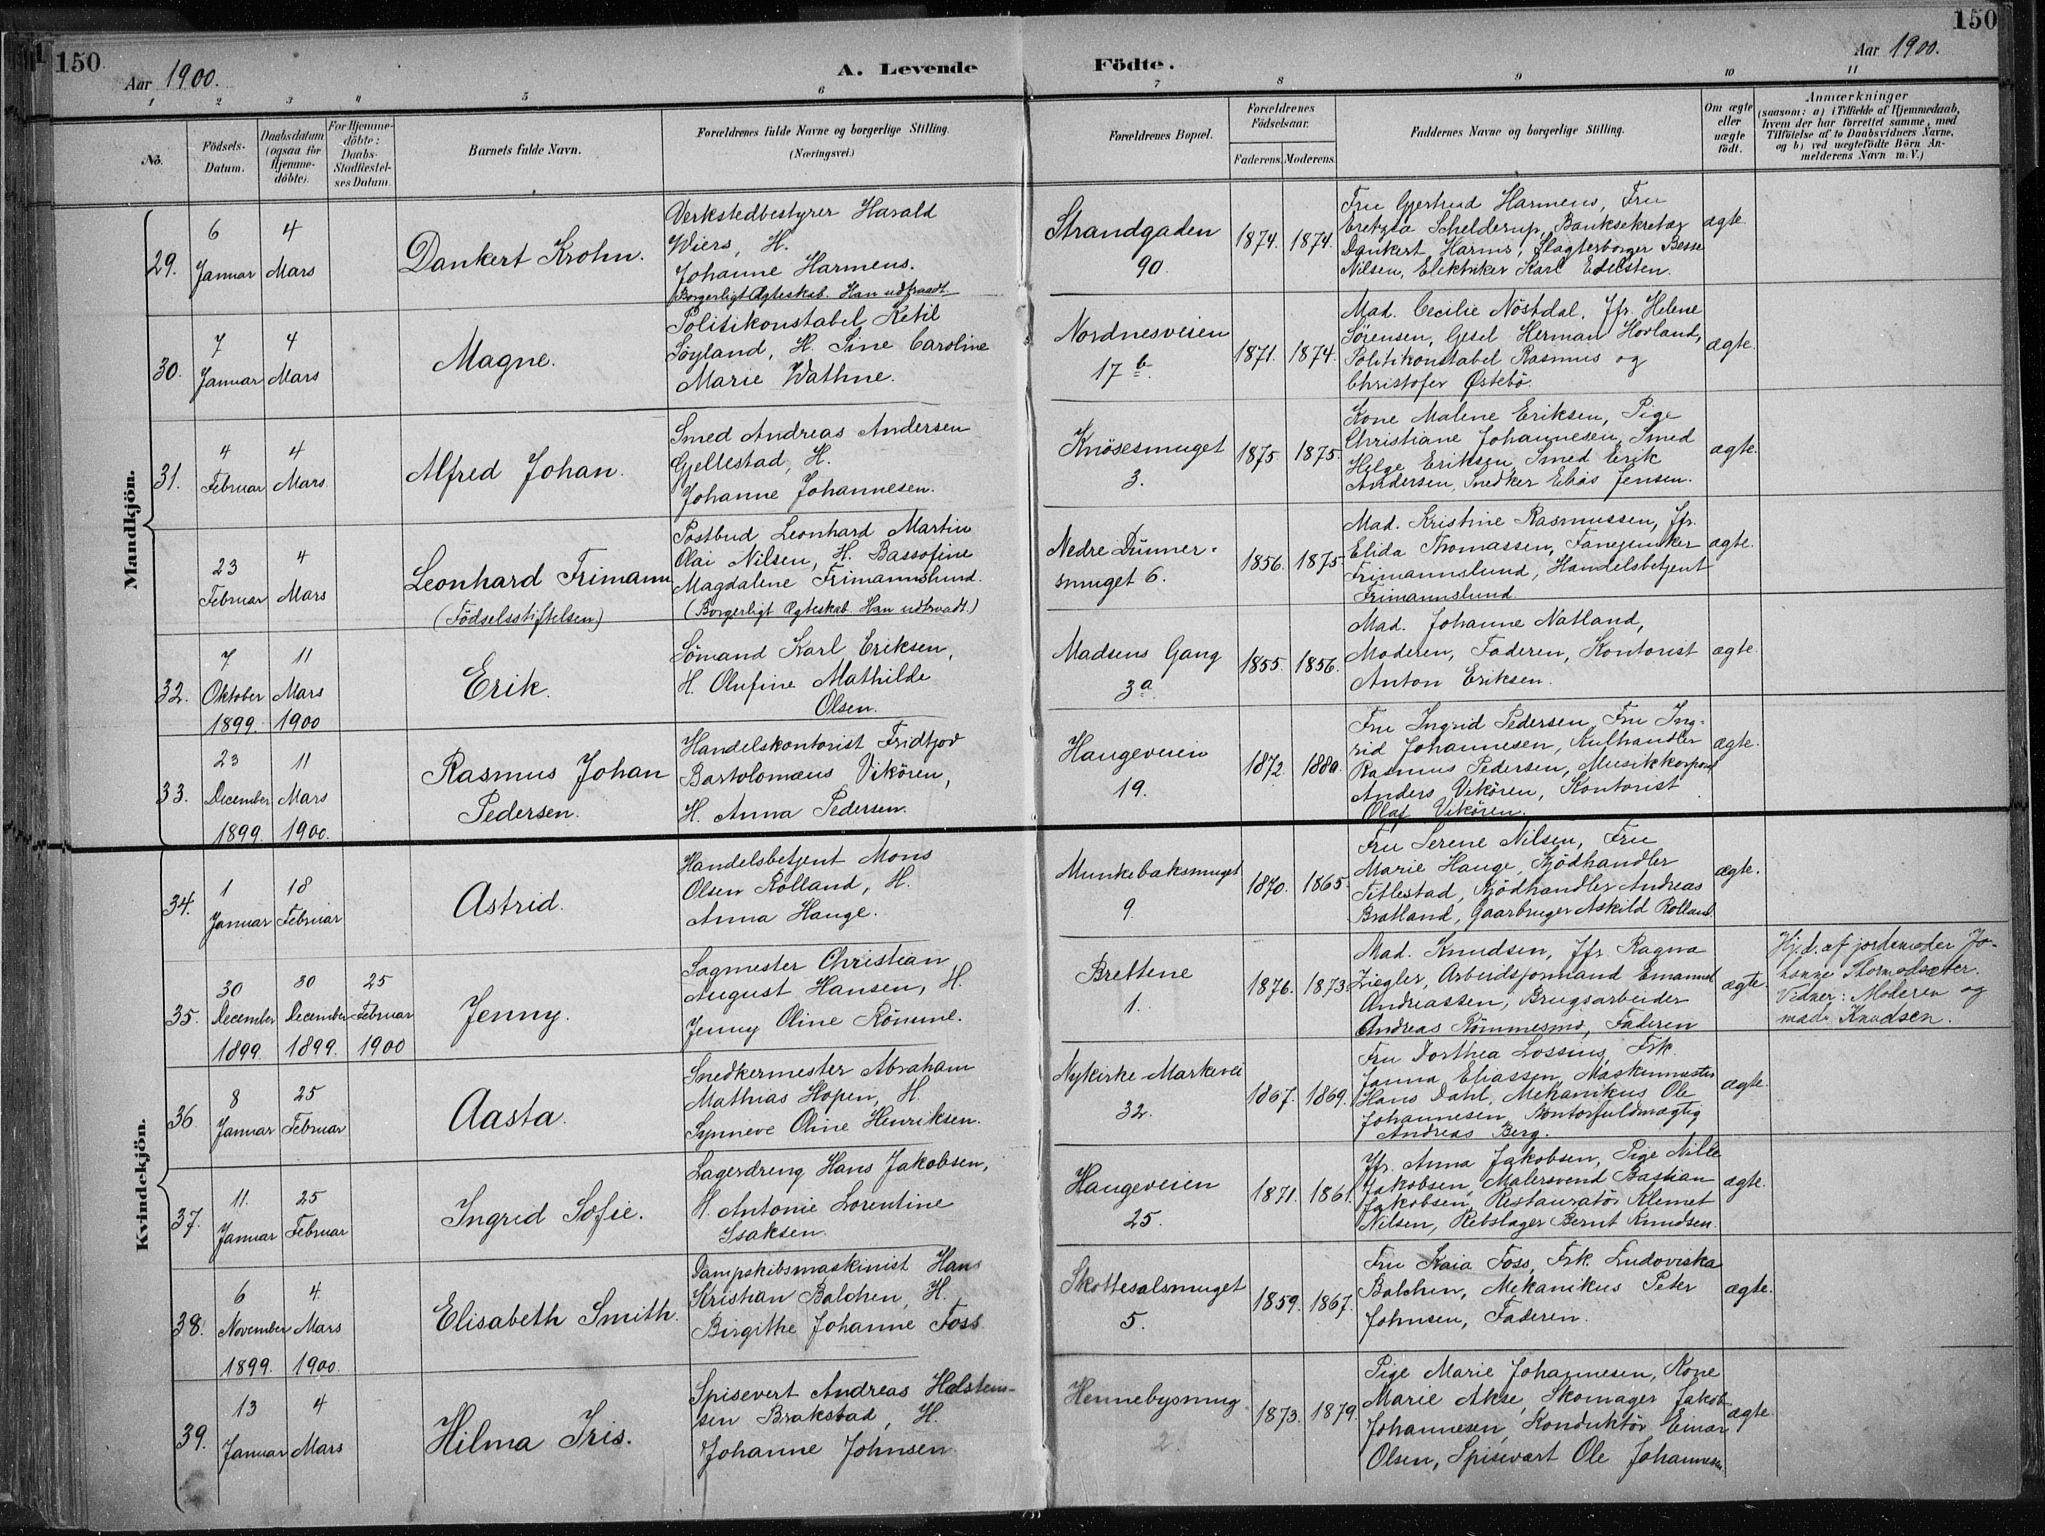 150
150
Aar 1900.
A. Levende
Födte.
Aar 1900.
1 2 3 4 5 6 7 8 9 10 11
No.
Födsels-
Datum.
Daabsdatum
(ogsaa for
Hjemme-
döbte).
For Hjemme-
döbte:
Daabs-
Stadfæstel-
ses Datum.
Barnets fulde Navn.
Forældrenes fulde Navne og borgerlige Stilling.
(Næringsvei.)
Forældrenes Bopæl.
Forældrenes
Födselsaar.
Faderens. Moderens.
Faddernes Navne og borgerlige Stilling.
Om ægte
eller
uægte
født.
Anmærkninger
(saasom: a) i Tilfælde af Hjemmedaab,
hvem der har forrettet samme, med
Tilföielse af to Daabsvidners Navne,
og b) ved uægtefödte Börn An-
melderens Navn m. V.)
Mandkjön.
29.
6
Januar
4
Mars
Dankert Krohn.
Verkstedbestyrer Harald
Wiers, H.
Johanne Harmens.
Borgerligt Ægteskab. Han udtraadt.
Strandgaden
90.
1874. 1874.
Fru Gjertrud Harmens, Fru
Schelderup, Banksekretær
Dankert Harms, Slagterborger Besse
Nilsen, Elektriker Karl Edelsten.
ægte.
30.
7
Januar
4
Mars
Magne.
Politikonstabel Ketil
Söyland, H. Sine Caroline
Marie Wathne.
Nordnesveien
17 b.
1871. 1874.
Mad. Cecilie Nöstdal, Jfr. Helene
Sörensen, Gesel Herman Hovland,
Politikonstabel Rasmus og
Christofer Østebö.
ægte.
31.
4
Februar
4
Mars
Alfred Johan.
Smed Andreas Andersen
Gjellestad, H.
Johanne Johannesen.
Knösesmuget
3.
1875. 1875.
Kone Malene Eriksen, Pige
Christiane Johannesen, Smed
Helge Eriksen, Smed Erik
Andersen, Snedker Elias Jensen.
ægte.
23
Februar
4
Mars
Leonhard Frimann
(Födselsstiftelsen)
Postbud Leonhard Martin
Olai Nilsen, H. Bassofine
Magdalene Frimannslund.
(Borgerligt Ægteskab Han udtraadt.)
Nedre Dünner-
smuget 6.
1856. 1875.
Mad. Kristine Rasmussen, Jfr.
Elida Thomassen,
Frimannslund, Handelsbetjent
Frimannslund.
ægte.
32.
7
Oktober
1899.
11
Mars
1900
Erik.
Sömand Karl Eriksen,
H. Olufine Mathilde
Olsen.
Madsens Gang
3a
1855. 1856.
Mad. Johanne Natland,
Moderen, Faderen, Kontorist
Anton Eriksen.
ægte.
33.
23
December
1899.
11
Mars
1900.
Rasmus Johan
Pedersen.
Handelskontorist Fridtjov
Bartolomæus Vikören,
H. Anna Pedersen.
Haugeveien
19.
1872. 1880.
Fru Ingrid Pedersen, Fru Ing-
rid Johannesen, Kulhandler
Rasmus Pedersen, Musikkorporal
Anders Vikören, Kontorist
Olaf Vikören.
ægte.
Kvindekjön.
34.
1
Januar
18
Februar
Astrid.
Handelsbetjent Mons
Olsen Rolland, H.
Anna Hauge.
Munkebaksmuget
9.
1870. 1865.
Fru Serene Nilsen, Fru
Marie Hauge, Kjödhandler
Titlestad, Kjödhandler Andreas
Bratland, Gaarbruger Askild Rolland.
ægte.
35.
30
December
1899.
30
December
1899.
25
Februar
1900
Jenny.
Sagmester Christian
August Hansen, H.
Jenny Oline Römme.
Brettene
1.
1876. 1873.
Mad. Knudsen, Jfr. Ragna
Ziegler, Arbeidsformand Emanuel
Andreassen, Brugsarbeider
Andreas Römmesmo, Faderen
ægte
Hj.d. af jordemoder Jo-
hanne Stormodsæter.
Vidner: Moderen og
mad. Knudsen.
36.
8
Januar
25
Februar
Aasta.
Snedkermester Abraham
Mathias Hopen, H.
Synneve Oline Henriksen.
Nykirke-Markevei
32.
1867. 1869.
Fru Dorthea Lossius, Frk.
Janna Eliassen, Maskinmester
Hans Dahl, Mekanikus Ole
Johannesen, Kontorfuldmægtig
Andreas Berg.
ægte.
37.
11.
Januar
25
Februar
Ingrid Sofie.
Lagerdreng Hans Jakobsen,
H. Antonie Lorentine
Isaksen.
Haugeveien
25.
1871. 1861.
Jfr. Anna Jakobsen, Pige Nille
Jakobsen, Malersvend Bastian
Jakobsen, Restauratör Klemet
Nilsen, Rebslager Bernt Knudsen.
ægte.
38.
6
November
1899.
4.
Mars
1900.
Elisabeth Smith.
Dampskibsmaskinist Hans
Kristian Balchen, H.
Birgithe Johanne Foss.
Skottesalsmuget
5.
1859. 1867.
Fru Kaia Foss, Frk. Ludoviska
Balchen, Mekanikus Peter
Johnsen, Faderen.
ægte.
39.
13
Januar
4
Mars
Hilma Iris.
Spisevert Andreas Halsten-
sen Brakstad, H.
Johanne Johnsen.
Hennebysmug
2.
1873. 1879.
Pige Marie Johannesen, Kone
Marie Akse, Skomager Jakob
Johannesen, Konduktör Einar
Olsen, Spisevært Ole Johannesen
ægte.